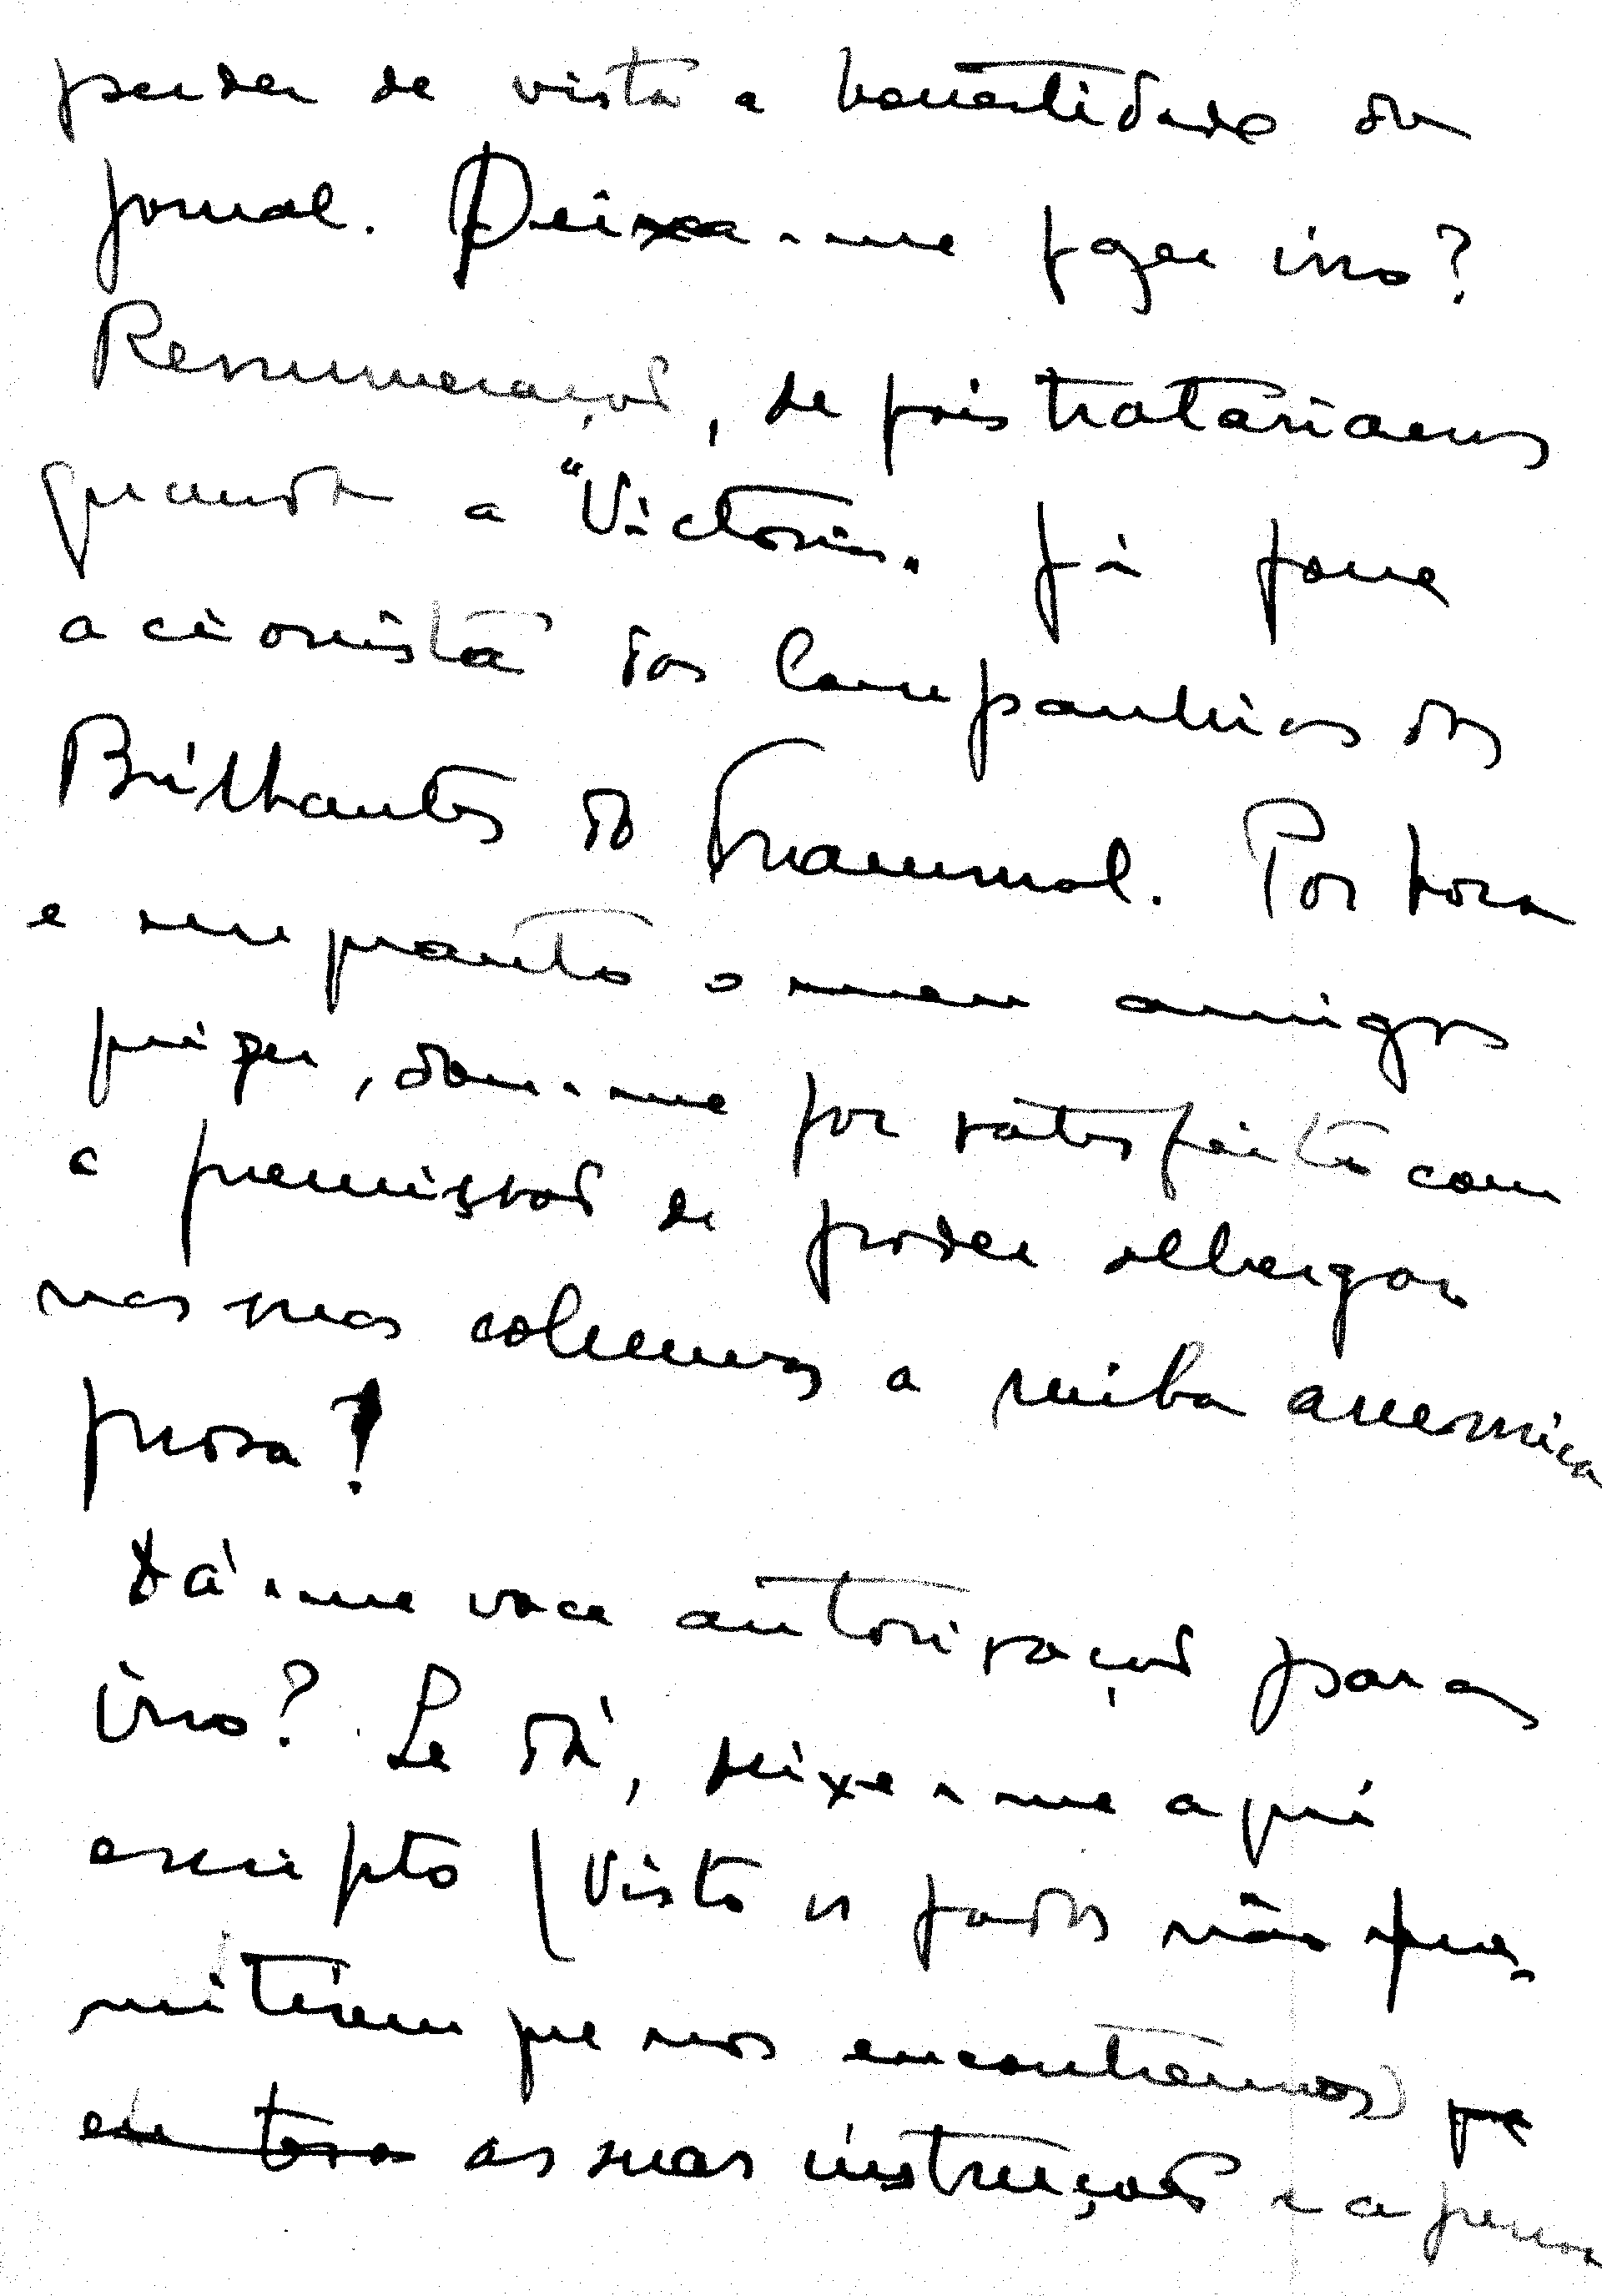 perder de vista a honestidade do
jornal. Deixa-me fazer isso?
Remmuneração, depois trataríamos
quando a "Victoria" já fosse
acionista das Companhias dos
Brilhantes do Grammol. Por hora
e emquanto o meu amigo
quizer, dou-me por satisfeito com
a premissão de poder albergar
nas suas columnas a ruiba anemica
prosa!
Dá-me voce autorisação para
isso? Se dá, deixe-me aqui
escripto (visto os fados não per-
mitirem que nos encontremos) que
as suas instruções e a pessoa